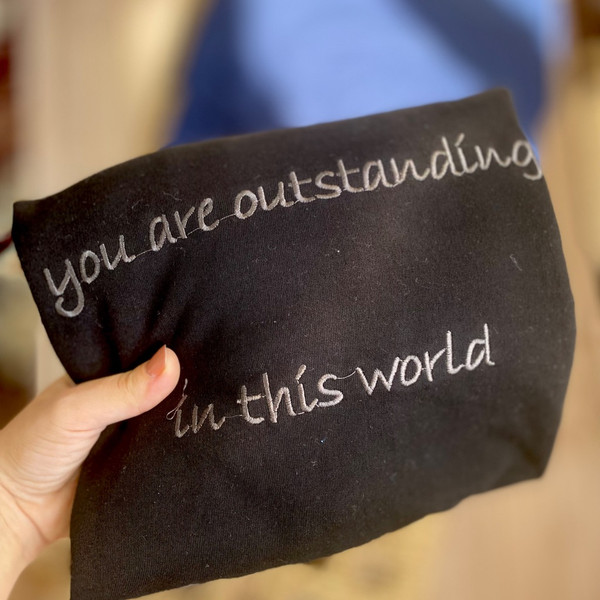 you are outstanding
in this world